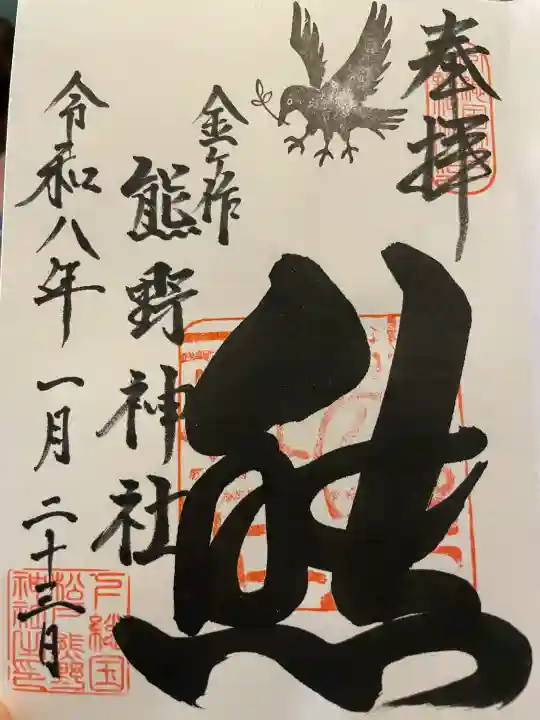 奉拝
熊
金ケ作
熊野神社
令和八年 一月 二十三日
下総国
松戸熊野
神社之印